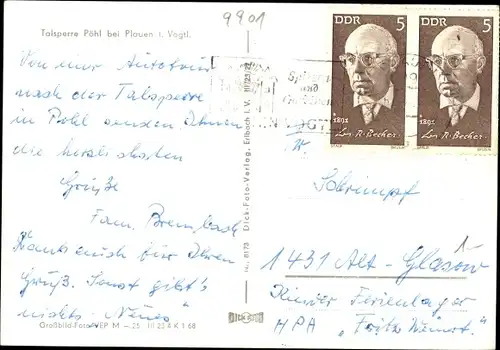 9901
Talsperre Pöhl bei Plauen i. Vogtl.
Von einer
nach der Talsperre
in Pöhl senden Ihnen
die herzlichsten
Grüße
Fam. Brembach
Danke auch für Ihren
Gruß. Sonst gibt's
nichts Neues
Großbild-Foto VEP M - 25 III 23 4 K 1 68
Nr. 8173 Dick-Foto-Verlag, Erlbach i. V. III/23/22
DICK FOTO
DDR 5
1891
Joh. R. Becher
DDR 5
1891
Joh. R. Becher
und
VOGTL
Schrimpf
1431 Alt-Glasow
Kinder Ferienlager
MPA "Fritz Weinert"